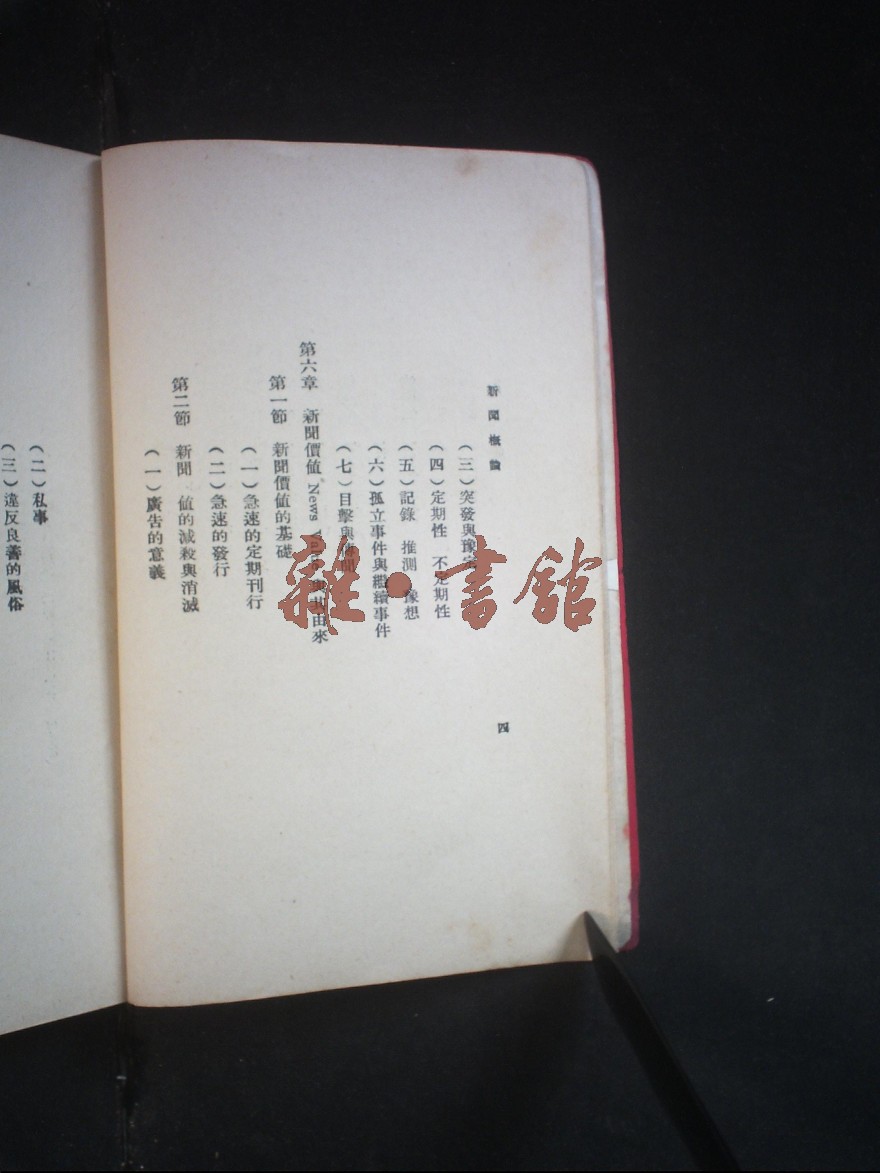 新聞概論
四
（三）突發與豫定
（四）定期性　不定期性
（五）記錄　推測　豫想
（六）孤立事件與繼續事件
（七）目擊與傳聞
第六章　新聞價値"News Value"與其由來
第一節　新聞價値的基礎
（一）急速的定期刊行
（二）急速的發行
第二節　新聞　値的減殺與消滅
（一）廣告的意義
（二）私事
（三）違反良善的風俗
雜·書館